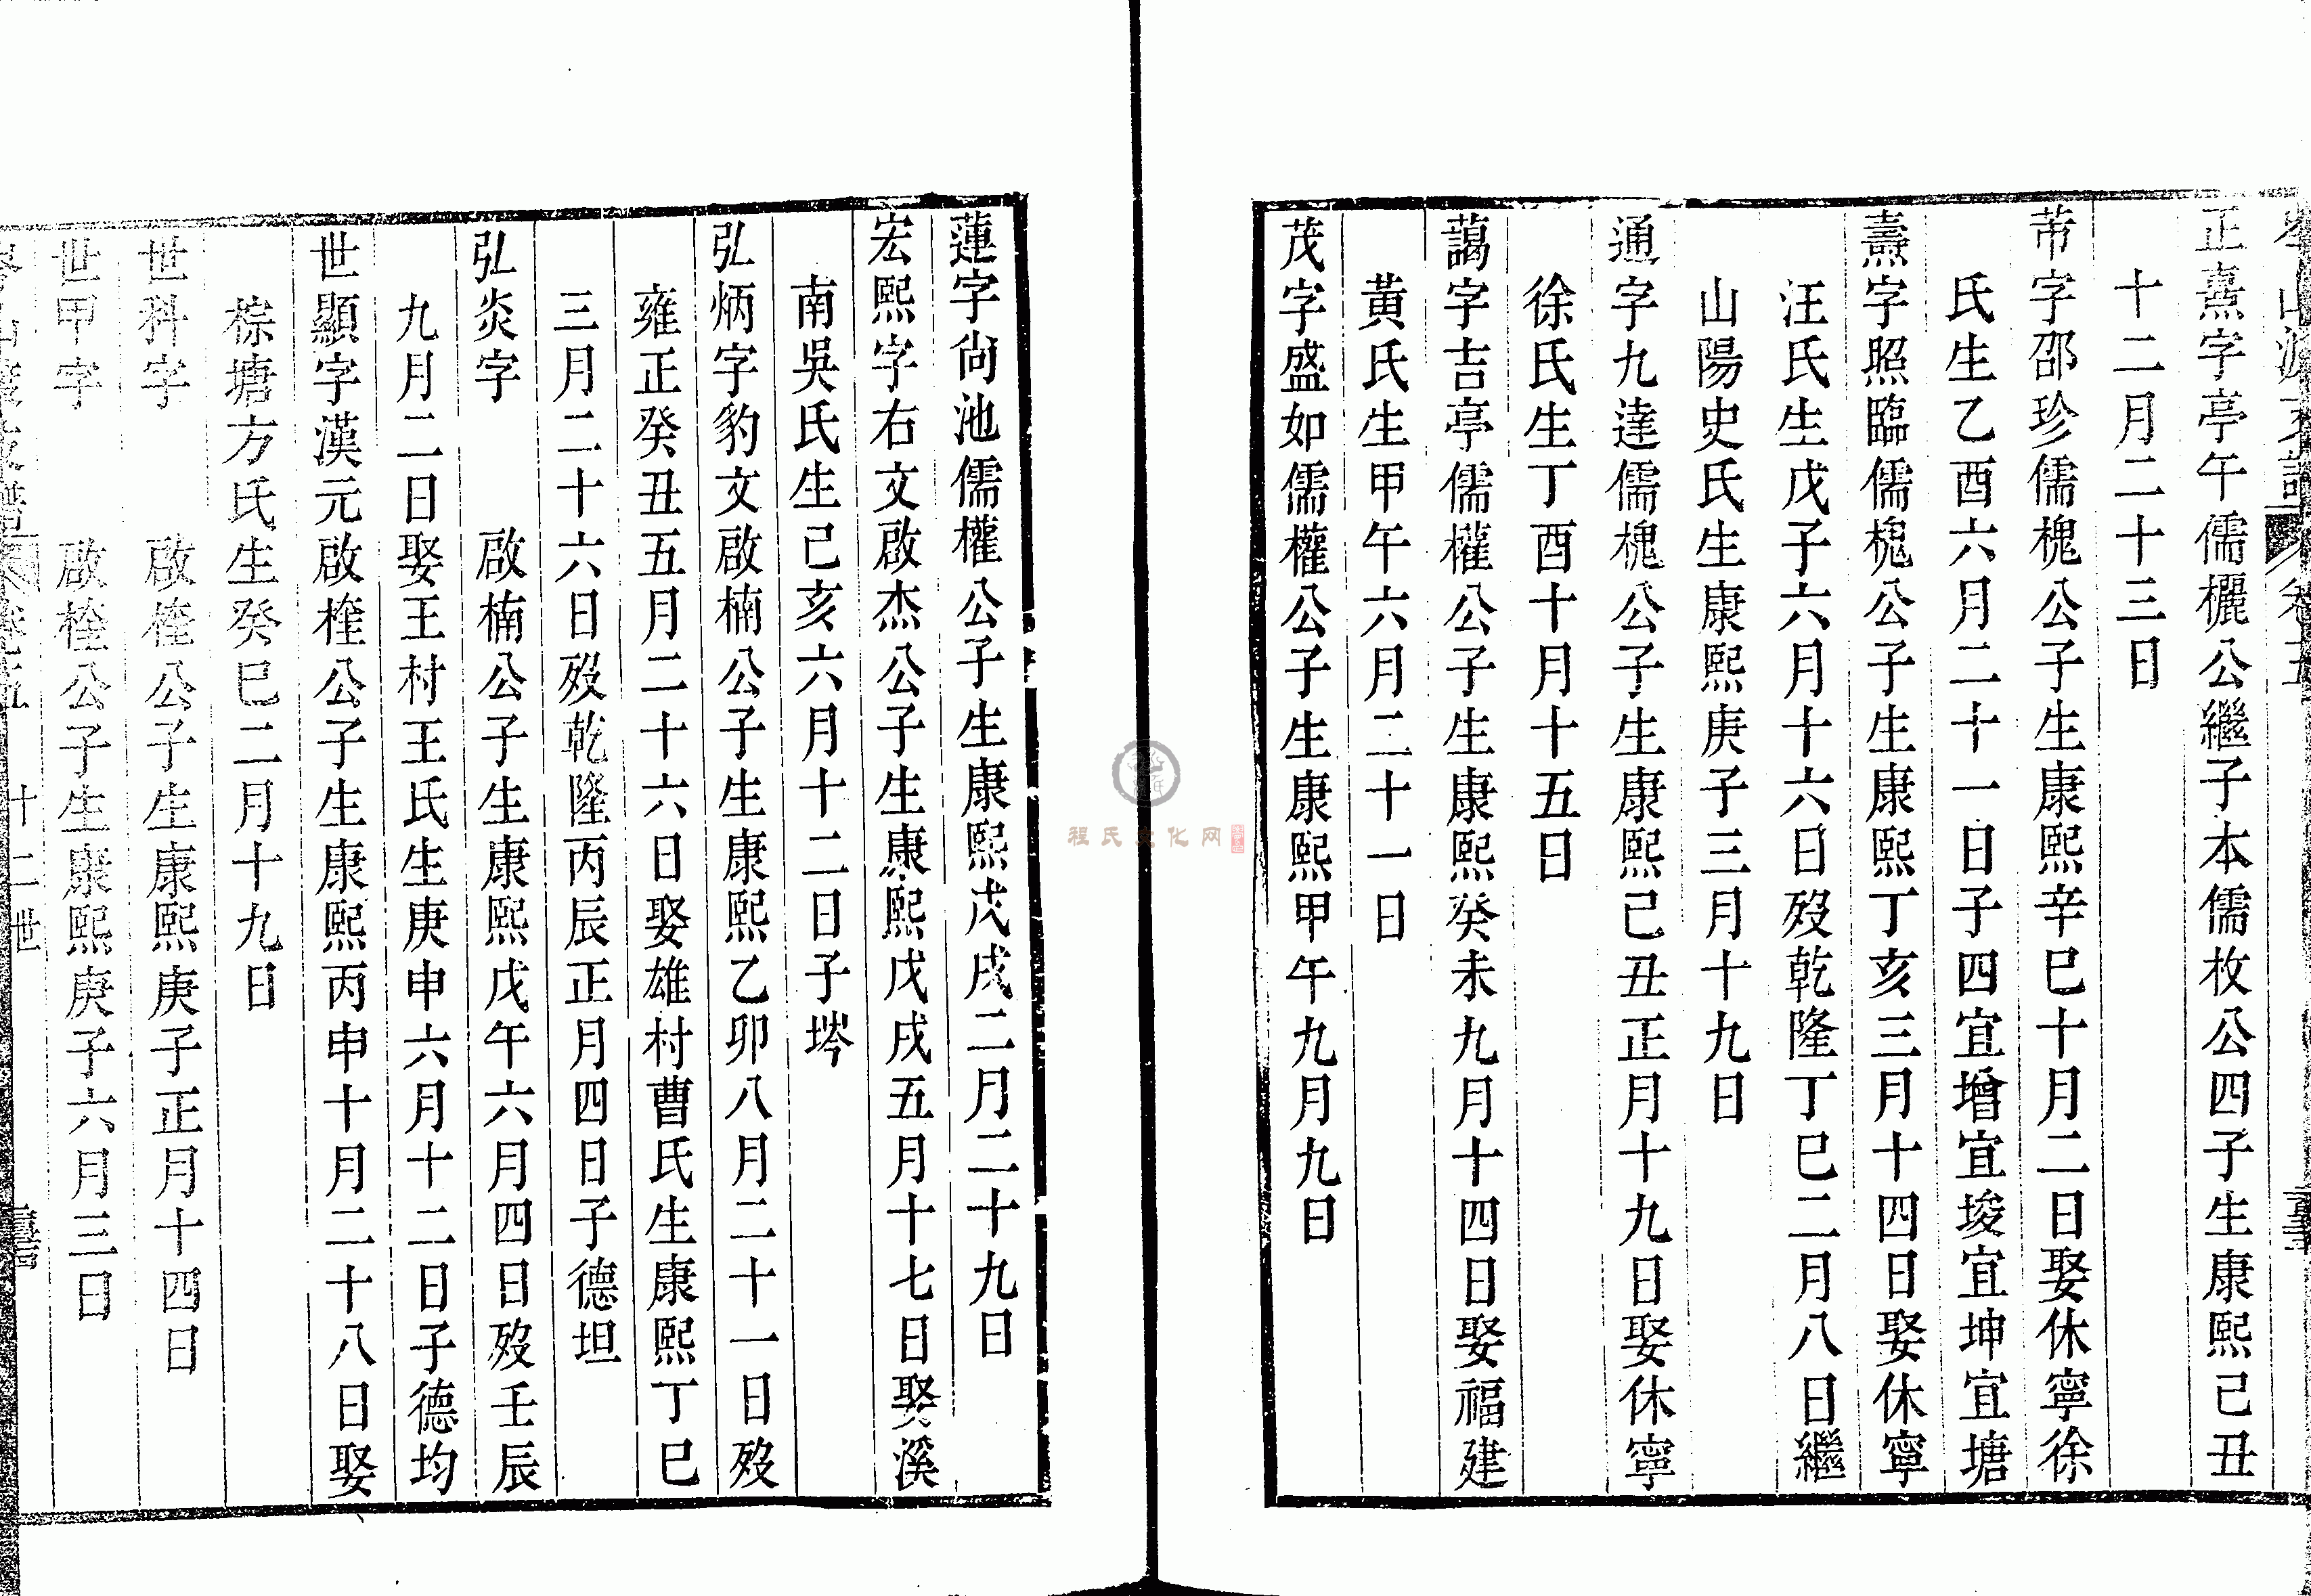 正熹字亭午儒欐公繼子本儒枚公四子生康熙己丑
十二月二十三日
芾字邵珍儒槐公子生康熙辛巳十月二日娶休寧徐
氏生乙酉六月二十一日子四宜增宜埈宜坤宜塘
燾字照臨儒槐公子生康熙丁亥三月十四日娶休寧
汪氏生戊子六月十六日歿乾隆丁巳二月八日繼
山陽史氏生康熙庚子三月十九日
通字九達儒槐公子生康熙己丑正月十九日娶休寧
徐氏生丁酉十月十五日
藹字吉亭儒權公子生康熙癸未九月十四日娶福建
黃氏生甲午六月二十一日
茂字盛如儒權公子生康熙甲午九月九日
蓮字尚池儒權公子生康熙戊戌二月二十九日
宏熙字右文啟杰公子生康熙戊戌五月十七日娶溪
南吳氏生己亥六月十二日子埁
弘炳字豹文啟楠公子生康熙乙卯八月二十一日歿
雍正癸丑五月二十六日娶雄村曹氏生康熙丁巳
三月二十六日歿乾隆丙辰正月四日子德坦
弘炎字 啟楠公子生康熙戊午六月四日歿壬辰
九月二日娶王村王氏生庚申六月十二日子德均
世顯字漢元啟樦公子生康熙丙申十月二十八日娶
棕塘方氏生癸巳二月十九日
世科字 啟樦公子生康熙庚子正月十四日
世甲字 啟樦公子生康熙庚子六月三日
十二世
程氏文化网